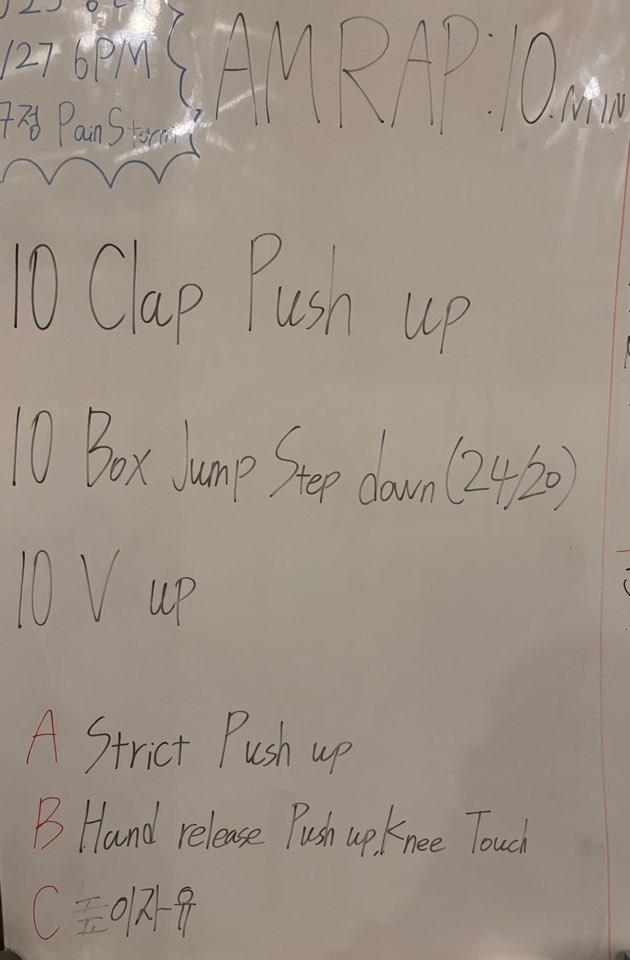 /27 6PM
구정 Pain Storm
AMRAP:10.MIN
10 Clap Push up
10 Box Jump Step down (24/20)
10 V up
A Strict Push up
B Hand release Push up, Knee Touch
C 높이자유